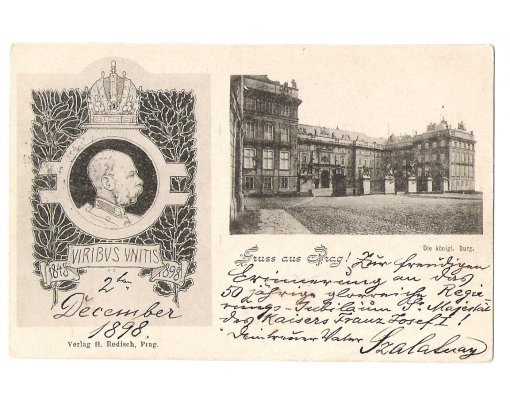 VIRIBVS VNITIS
1848 1898
2ten
December
1898.
Verlag H. Redisch, Prag.
Die königl. Burg.
Gruss aus Prag! Zur freudigen
Erinnerung an das
50 jährige glorreiche Regie-
rungs-Jubiläum Sr. Majestät
des Kaisers Franz Josef I!
Dein treuer Vater
Szalatnay